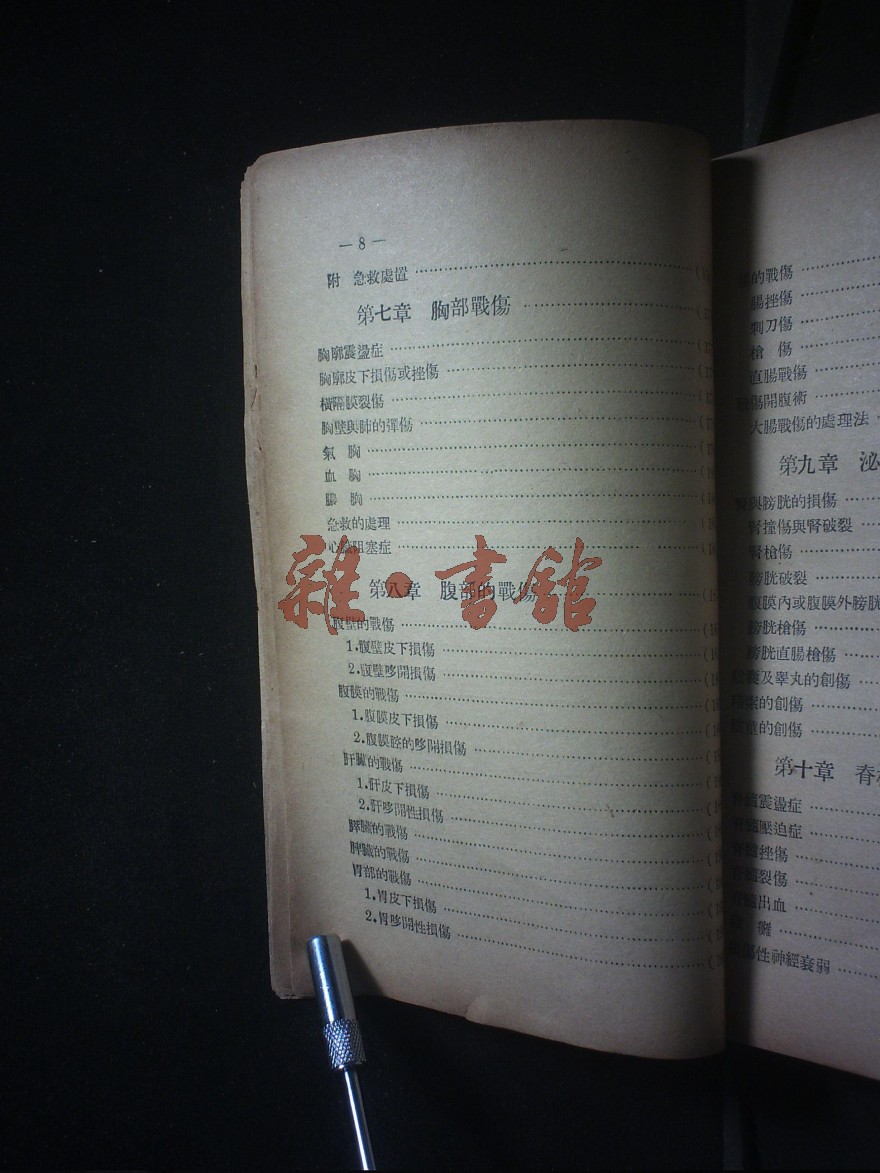 — 8 —
附 急救處置
第七章 胸部戰傷
胸廓震盪症
胸廓皮下損傷或挫傷
橫隔膜裂傷
胸壁與肺的彈傷
氣胸
血胸
膿胸
急救的處理
心臟阻塞症
第八章 腹部的戰傷
腹壁的戰傷
1.腹壁皮下損傷
2.腹壁哆開損傷
腹膜的戰傷
1.腹膜皮下損傷
2.腹膜腔的哆開損傷
肝臟的戰傷
1.肝皮下損傷
2.肝哆開性損傷
膵臟的戰傷
脾臟的戰傷
胃部的戰傷
1.胃皮下損傷
2.胃哆開性損傷
雜·書館
的戰傷
腸挫傷
刺刀傷
槍傷
直腸戰傷
傷開腹術
大腸戰傷的處理法
第九章 泌
腎與膀胱的損傷
腎撞傷與腎破裂
腎槍傷
膀胱破裂
腹膜內或腹膜外膀胱
膀胱槍傷
膀胱直腸槍傷
及睾丸的創傷
的創傷
的創傷
第十章 脊
震盪症
壓迫症
挫傷
裂傷
出血
癱
性神經衰弱